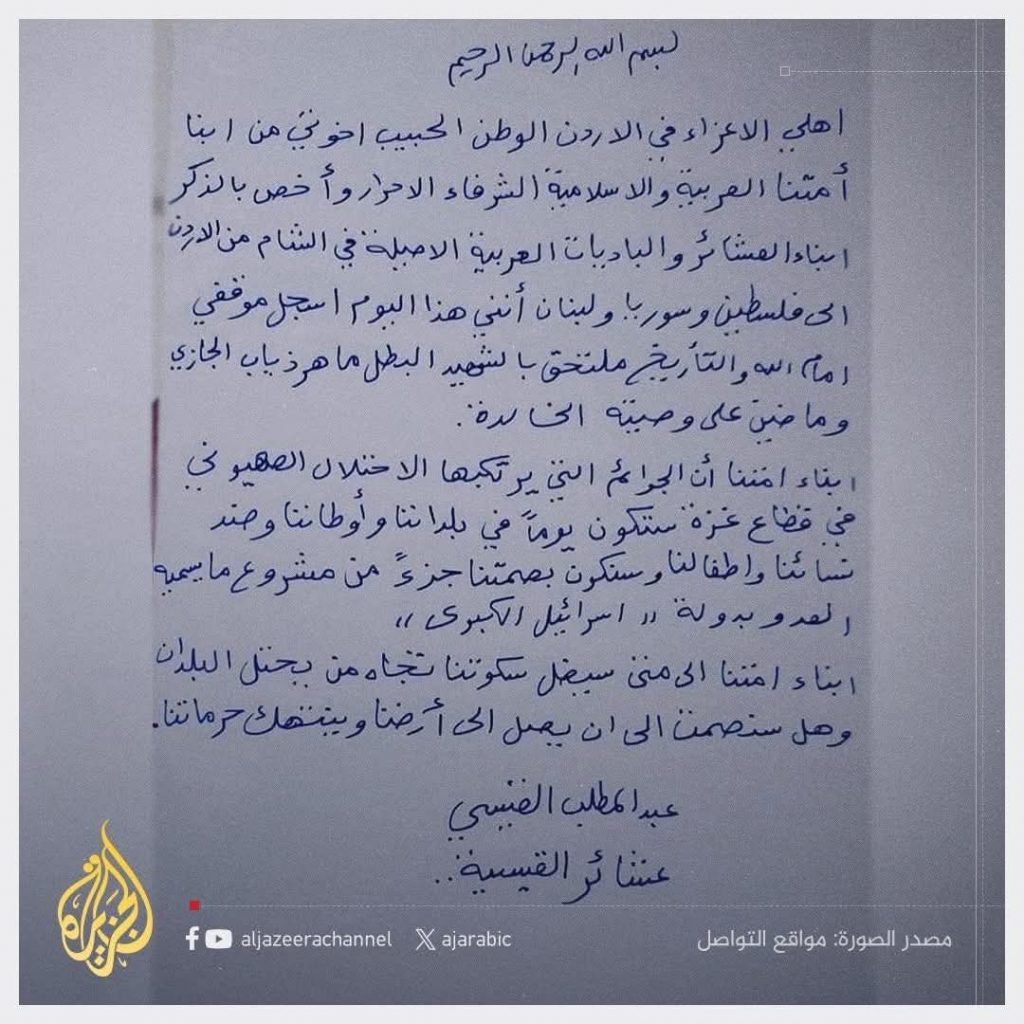 بسم الله الرحمن الرحيم
اهلي الاعزاء في الاردن الوطن الحبيب اخوتي من ابنا
أمتنا العربية والاسلامية الشرفاء الاحرار وأخص بالذكر
ابناء العشائر والباديات العربية الاصيلة في الشام من الاردن
الى فلسطين وسوريا ولبنان أنني هذا اليوم اسجل موقفي
امام الله والتأريخ ملتحق بالشهيد البطل ماهر ذياب الجازي
وماضين على وصيته الخالدة.
ابناء امتنا أن الجرائم التي يرتكبها الاحتلال الصهيوني
في قطاع غزة ستكون يوماً في بلداننا وأوطاننا وضد
نسائنا واطفالنا وسنكون بصمتنا جزءً من مشروع ما يسميه
العدو بدولة "اسرائيل الكبرى"
ابناء امتنا الى متى سيضل سكوتنا تجاه من يحتل البلدان
وهل سنصمت الى ان يصل الى أرضنا وينتهك حرماتنا.
عبد المطلب القيسي
عشائر القيسية..
الجزيرة
aljazeerachannel ajarabic
مصدر الصورة: مواقع التواصل